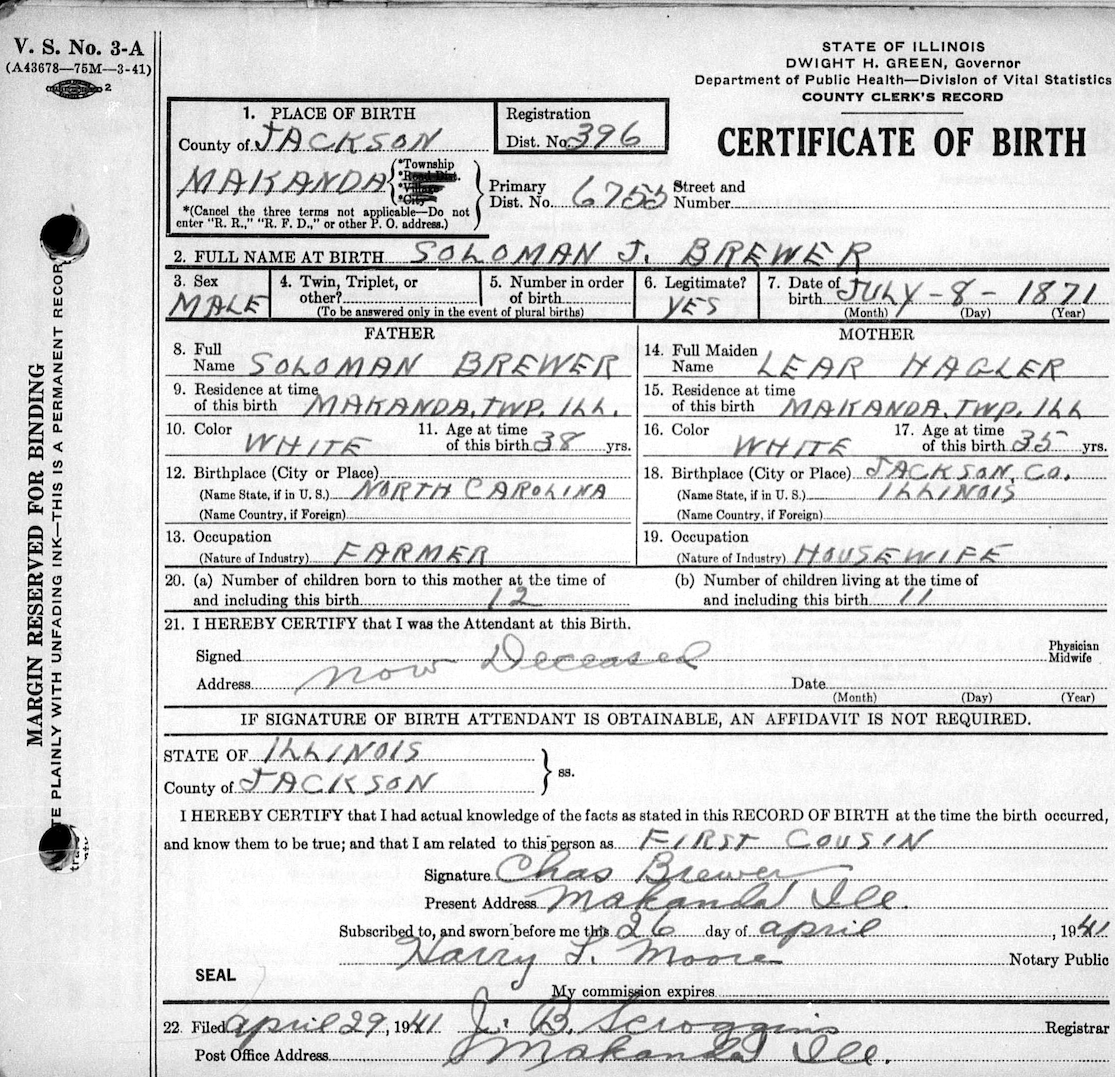 V. S. No. 3-A
(A43678—75M—3-41)
2
STATE OF ILLINOIS
DWIGHT H. GREEN, Governor
Department of Public Health—Division of Vital Statistics
COUNTY CLERK'S RECORD
CERTIFICATE OF BIRTH
1. PLACE OF BIRTH
County of JACKSON
Registration
Dist. No. 396
MAKANDA
*Township
*Road Dist.
*Village
*City
*(Cancel the three terms not applicable—Do not
enter "R. R.," "R. F. D.," or other P. O. address.)
Primary
Dist. No. 6755
Street and
Number
2. FULL NAME AT BIRTH SOLOMAN J. BREWER
3. Sex
MALE
4. Twin, Triplet, or
other?
5. Number in order
of birth
(To be answered only in the event of plural births)
6. Legitimate?
YES
7. Date of
birth JULY - 8 - 1871
(Month) (Day) (Year)
FATHER
8. Full
Name SOLOMAN BREWER
9. Residence at time
of this birth MAKANDA, TWP. ILL.
10. Color WHITE
11. Age at time
of this birth 38 yrs.
12. Birthplace (City or Place)
(Name State, if in U. S.) NORTH CAROLINA
(Name Country, if Foreign)
13. Occupation
(Nature of Industry) FARMER
MOTHER
14. Full Maiden
Name LEAR HAGLER
15. Residence at time
of this birth MAKANDA. TWP. ILL
16. Color WHITE
17. Age at time
of this birth 35 yrs.
18. Birthplace (City or Place) JACKSON, CO.
(Name State, if in U. S.) ILLINOIS
(Name Country, if Foreign)
19. Occupation
(Nature of Industry) HOUSEWIFE
20. (a) Number of children born to this mother at the time of
and including this birth 12
(b) Number of children living at the time of
and including this birth 11
21. I HEREBY CERTIFY that I was the Attendant at this Birth.
Signed
now Deceased
Physician
Midwife
Address
Date
(Month) (Day) (Year)
IF SIGNATURE OF BIRTH ATTENDANT IS OBTAINABLE, AN AFFIDAVIT IS NOT REQUIRED.
STATE OF ILLINOIS
County of JACKSON
ss.
I HEREBY CERTIFY that I had actual knowledge of the facts as stated in this RECORD OF BIRTH at the time the birth occurred,
and know them to be true; and that I am related to this person as FIRST COUSIN
Signature Chas Brewer
Present Address Makanda Ill.
Subscribed to, and sworn before me this 26 day of april, 1941
Harry L. Moore Notary Public
SEAL
My commission expires
22 Filed april 29, 1941 J. B. Scroggins Registrar
Post Office Address Makanda Ill.
MARGIN RESERVED FOR BINDING
TE PLAINLY WITH UNFADING INK—THIS IS A PERMANENT RECOR